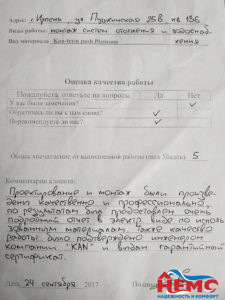 Адрес: г. Ирпень, ул. Пушкинская 25В, кв 136
Виды работы: монтаж систем отопления и водоснаб-
Вид материала Kan-term push Platinum жения
Оценка качества работы
Пожалуйста, ответьте на вопросы Да Нет
У вас были замечания? ✓
Обратитесь ли вы к нам снова? ✓
Порекомендуете ли нас? ✓
Общее впечатление от выполненной работы (max 5балов) 5
Комментарии клиента:
Проектирование и монтаж были произве-
дены качественно и профессионально,
по результатам был предоставлен очень
подробный отчет в электр. виде по исполь-
зованным материалам. Также качество
работы было подтверждено инженером
компании "KAN" и выдан гарантийный
сертификат.
Дата 24 сентября 2017
НЕМС
НАДЕЖНОСТЬ И КОМФОРТ